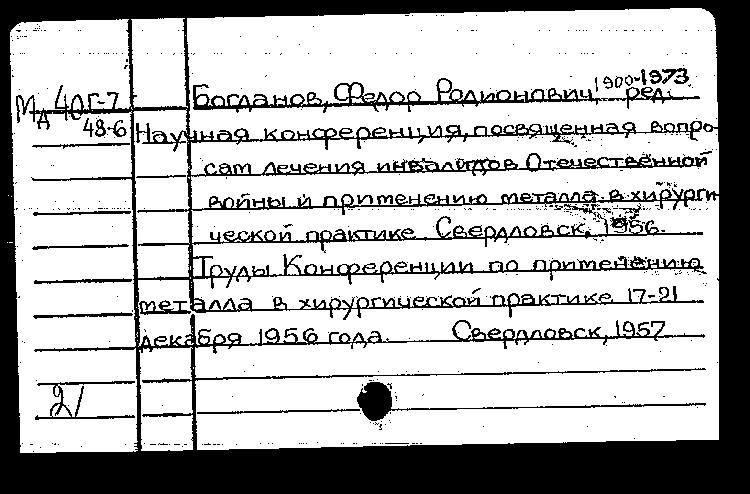 МА 40Г-7
48-6
Богданов, Федор Родионович, 1900-1973 ред.
Научная конференция, посвященная вопро-
сам лечения инвалидов Отечественной
войны и применению металла в хирурги-
ческой практике. Свердловск, 1956.
Труды Конференции по применению
металла в хирургической практике 17-21
декабря 1956 года. Свердловск, 1957
21